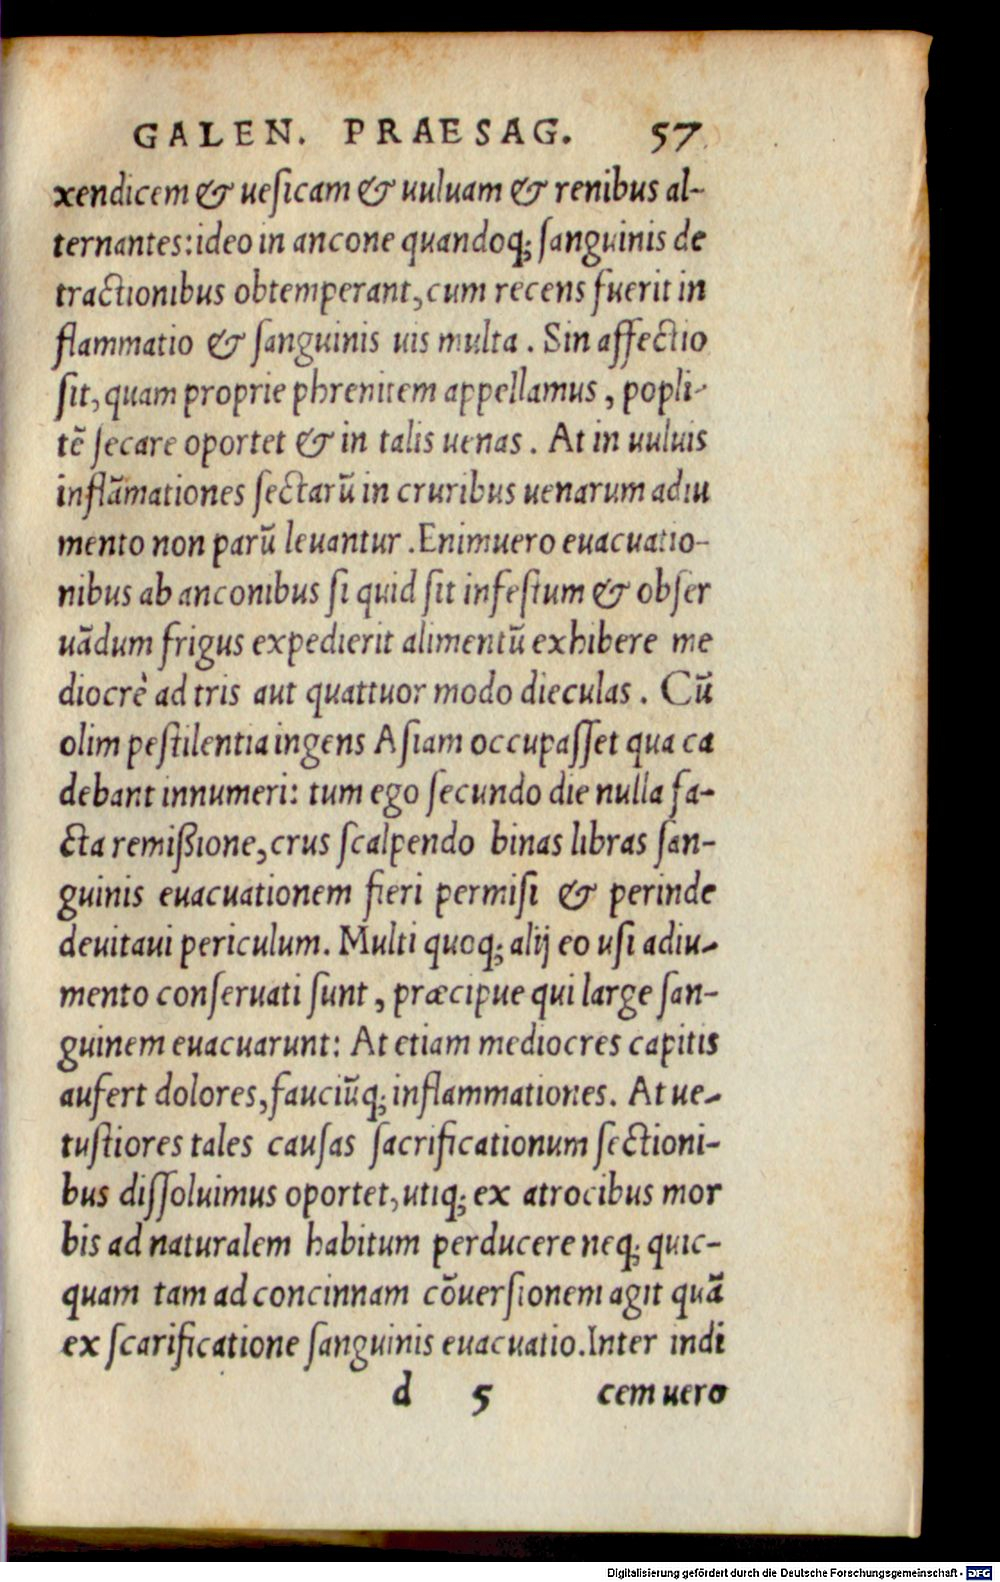 GALEN. PRAESAG. 57
xendicem & ueſicam & uuluam & renibus al-
ternantes: ideo in ancone quandoq; ſanguinis de
tractionibus obtemperant, cum recens fuerit in
flammatio & ſanguinis uis multa. Sin affectio
ſit, quam proprie phrenitem appellamus, popli-
tē ſecare oportet & in talis uenas. At in uuluis
inflāmationes ſectarū in cruribus uenarum adiu
mento non parū leuantur. Enimuero euacuatio-
nibus ab anconibus ſi quid ſit infeſtum & obſer
uādum frigus expedierit alimentū exhibere me
diocrē ad tris aut quattuor modo dieculas. Cū
olim peſtilentia ingens Aſiam occupaſſet qua ca
debant innumeri: tum ego ſecundo die nulla fa-
cta remißione, crus ſcalpendo binas libras ſan-
guinis euacuationem fieri permiſi & perinde
deuitaui periculum. Multi quoq; alij eo uſi adiu-
mento conſeruati ſunt, præcipue qui large ſan-
guinem euacuarunt: At etiam mediocres capitis
aufert dolores, fauciūq; inflammationes. At ue-
tuſtiores tales cauſas ſacrificationum ſectioni-
bus diſſoluimus oportet, utiq; ex atrocibus mor
bis ad naturalem habitum perducere neq; quic-
quam tam ad concinnam cōuerſionem agit quā
ex ſcarificatione ſanguinis euacuatio. Inter indi
d 5 cem uero
Digitalisierung gefördert durch die Deutsche Forschungsgemeinschaft - DFG